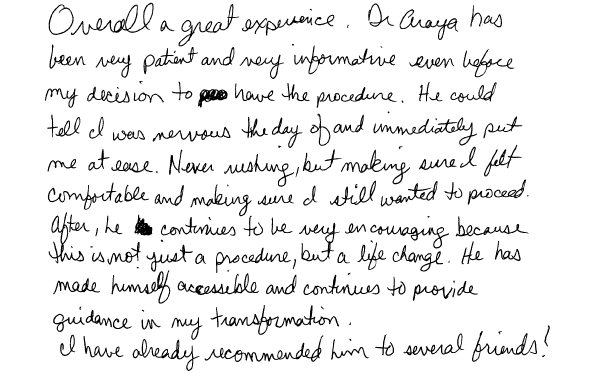 Overall a great experience. Dr Araya has
been very patient and very informative even before
my decision to have the procedure. He could
tell I was nervous the day of and immediately put
me at ease. Never rushing, but making sure I felt
comfortable and making sure I still wanted to proceed.
After, he continues to be very encouraging because
this is not just a procedure, but a life change. He has
made himself accessible and continues to provide
guidance in my transformation.
I have already recommended him to several friends!